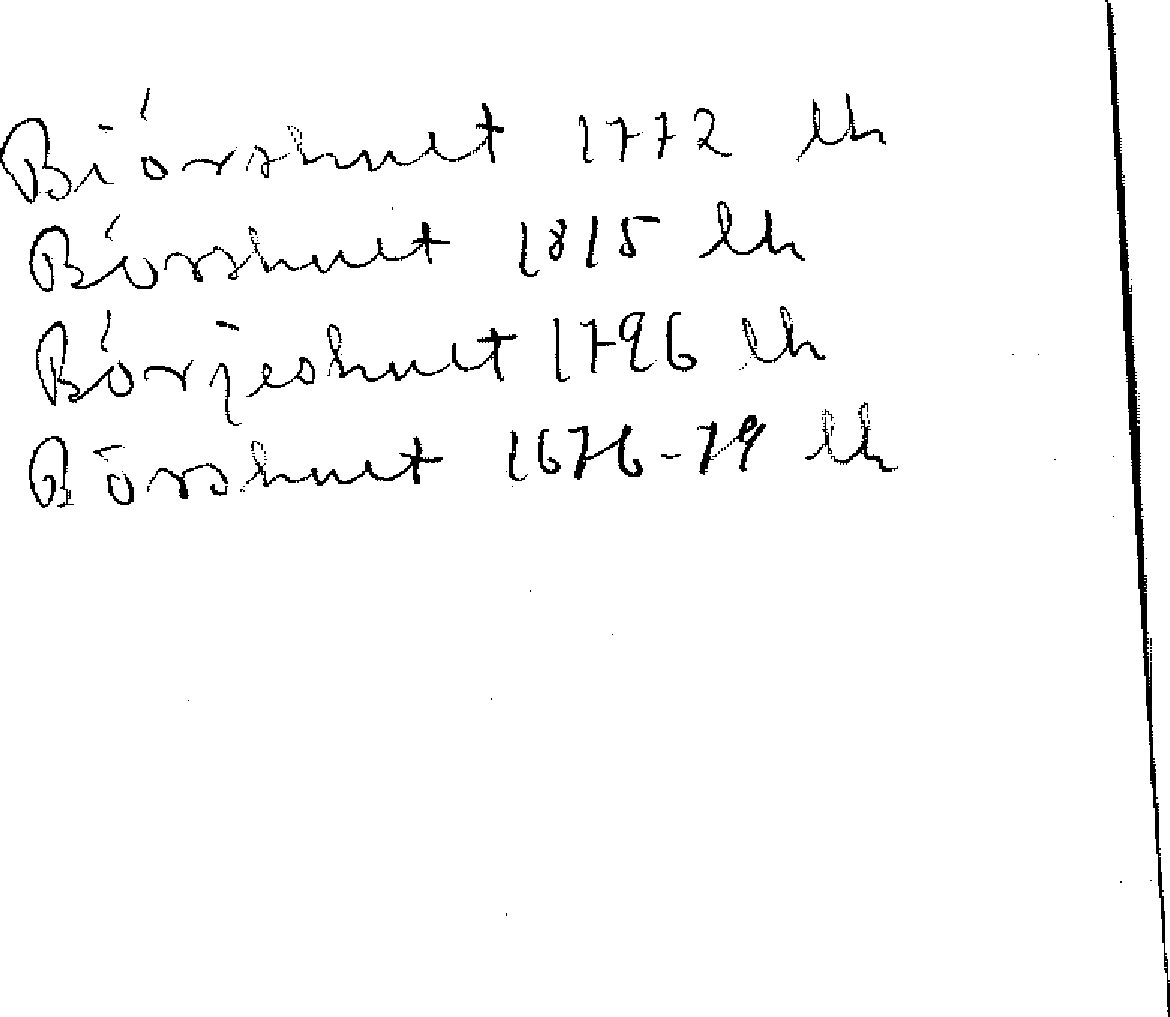 Biórshult 1772 lh
Bórshult 1815 lh
Bórjeshult 1796 lh
Bōrshult 1676-79 lh